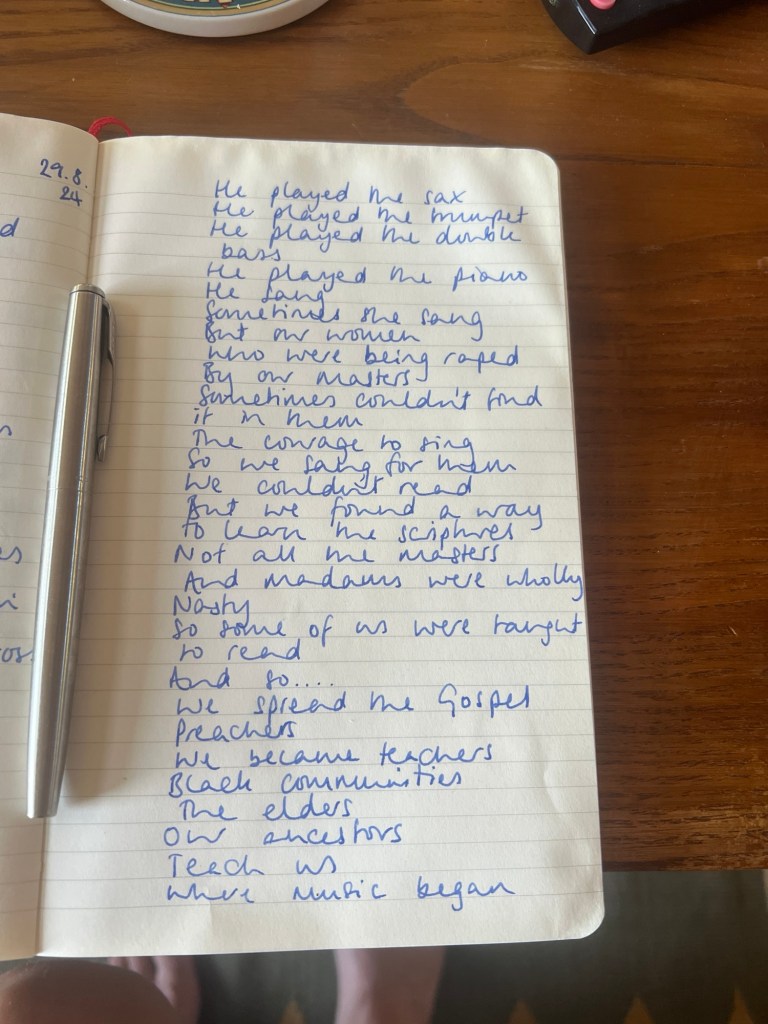 29.8.
24
d
He played the sax
He played the trumpet
He played the double
bass
He played the piano
He sang
Sometimes she sang
But our women
Who were being raped
By our masters
Sometimes couldn't find
it in them
The courage to sing
So we sang for them
We couldn't read
But we found a way
to learn the scriptures
Not all the masters
And madams were wholly
Nasty
So some of us were taught
to read
And so....
We spread the Gospel
Preachers
We became teachers
Black communities
The elders
Our ancestors
Teach us
Where Music began